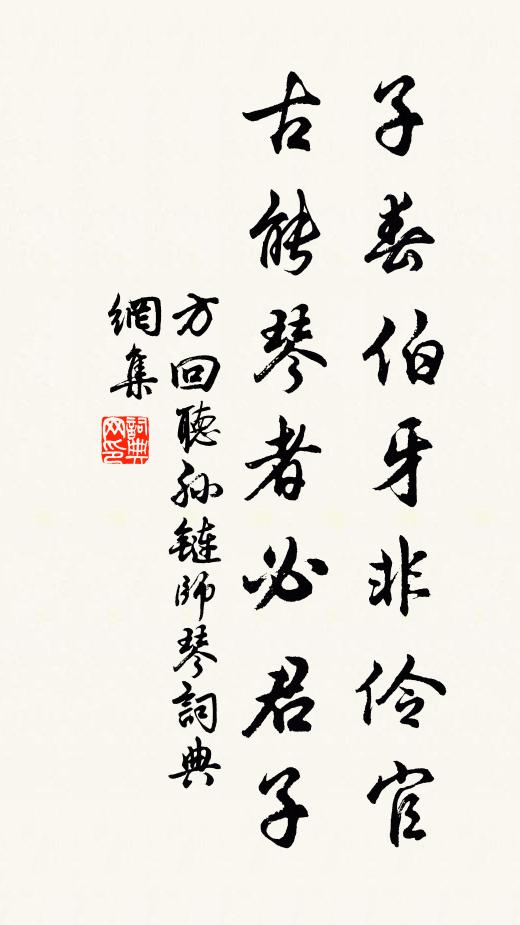 子春伯牙非伶官
古能琴者必君子
方回聽孙鏈師琴詞典
網集
詞典
网印